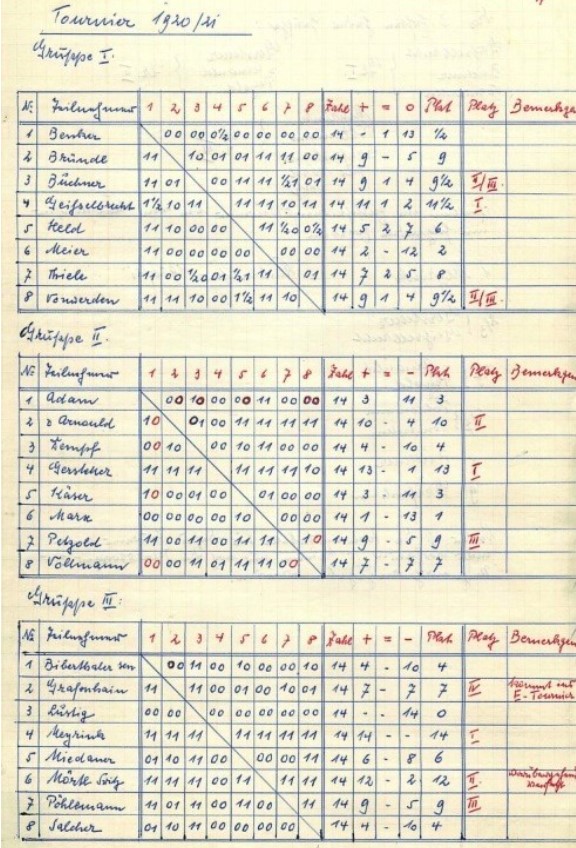 Tournier 1920/21
Gruppe I.
Nr. Teilnehmer 1 2 3 4 5 6 7 8 Zahl + = 0 Pkt Platz Bemerkgen
1 Benker 00 00 0½ 00 00 00 00 14 - 1 13 ½
2 Bründl 11 10 01 01 11 11 00 14 9 - 5 9
3 Büchner 11 01 00 11 11 ½1 01 14 9 1 4 9½ II/III.
4 Geißelbrecht 1½ 10 11 11 11 10 11 14 11 1 2 11½ I.
5 Held 11 10 00 00 11 ½0 0½ 14 5 2 7 6
6 Meier 11 00 00 00 00 00 00 14 2 - 12 2
7 Thiele 11 00 ½0 01 ½1 11 01 14 7 2 5 8
8 Vonwerden 11 11 10 00 1½ 11 10 14 9 1 4 9½ II/III
Gruppe II.
Nr Teilnehmer 1 2 3 4 5 6 7 8 Zahl + = - Pkt Platz Bemerkgen
1 Adam 00 10 00 00 11 00 00 14 3 11 3
2 Arnould 10 01 00 11 11 11 11 14 10 - 4 10 II
3 Kempf 00 10 00 10 11 00 00 14 4 - 10 4
4 11 11 11 11 11 11 10 14 13 - 1 13 I
5 Käser 10 00 01 00 01 00 00 14 3 11 3
6 Marx 00 00 00 00 10 00 00 14 1 - 13 1
7 Petzold 11 00 11 00 11 11 10 14 9 - 5 9 III
8 Vollmann 00 00 11 01 11 11 00 14 7 - 7 7
Gruppe III:
Nr Teilnehmer 1 2 3 4 5 6 7 8 Zahl + = - Pkt Platz Bemerkgen
1 Biberthaler sen 00 11 00 10 00 00 10 14 4 - 10 4
2 Grafenhain 11 11 00 01 00 10 01 14 7 - 7 7 IV kommt ins E-Tournier
3 Lustig 00 00 00 00 00 00 00 14 - - 14 0
4 Meyrink 11 11 11 11 11 11 11 14 14 - - 14 I
5 Miedaner 01 10 11 00 00 00 11 14 6 - 8 6
6 Mörtl Fritz 11 11 11 00 11 11 11 14 12 - 2 12 II
7 Pöhlemann 11 01 11 00 11 00 11 14 9 - 5 9 III
8 Salcher 01 10 11 00 00 00 00 14 4 - 10 4